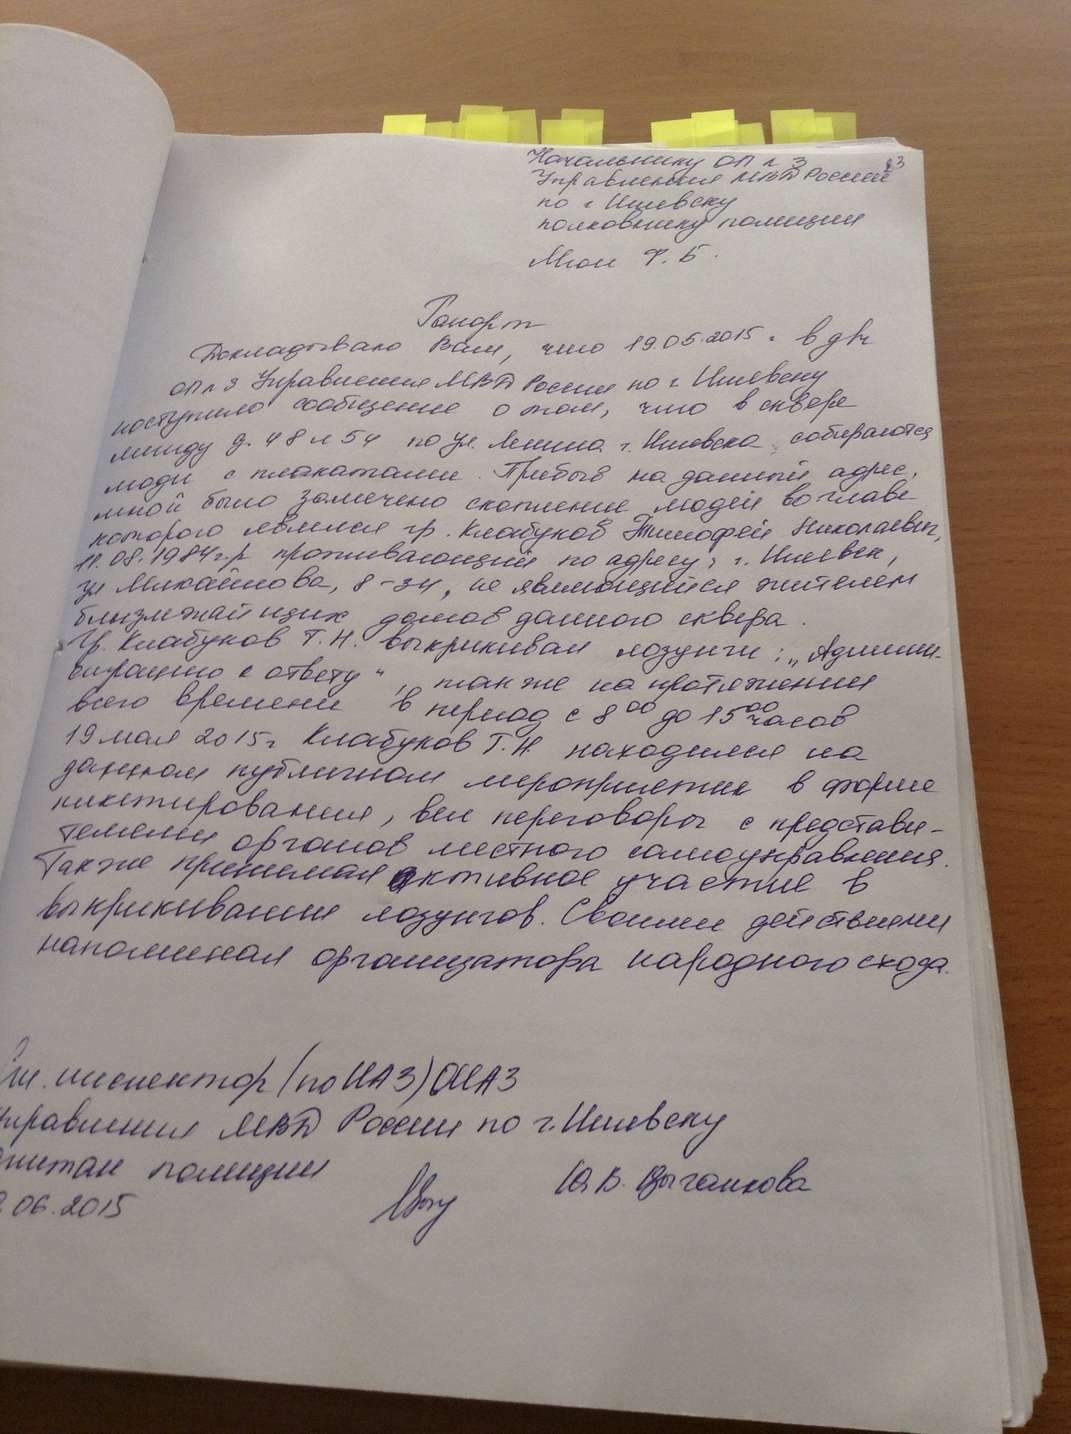 Начальнику ОП № 3
83
Управления МВД России
по г. Ижевску
полковнику полиции
Ф. Б.
Рапорт
Докладываю Вам, что 19.05.2015 г в д/ч
ОП № 3 Управления МВД России по г. Ижевску
поступило сообщение о том, что в сквере
между д. 48 и 54 по ул. Ленина г. Ижевска собираются
люди с плакатами. Прибыв на данный адрес,
мной было замечено скопление людей во главе
которого являлся гр. Клабуков Тимофей Николаевич,
11.08.1984 г.р проживающий по адресу: г. Ижевск,
ул 8-34, не являющийся жителем
близлежайщих домов данного сквера.
Гр. Клабуков Т.Н. выкрикивал лозунги: „Админи-
страцию к ответу", также на протяжении
всего времени в период с 8 00 до 15 00 часов
19 мая 2015 г Клабуков Т.Н находился на
данном публичном мероприятии в форме
пикетирования, вел переговоры с представи-
телями органов местного самоуправления.
Также принимал активное участие в
выкрикивании лозунгов. Своими действиями
напоминал организатора народного схода.
Ст. инспектор (по ИАЗ) ОИАЗ
Управления МВД России по г. Ижевску
капитан полиции
Ю.В. Цыганкова
.06.2015